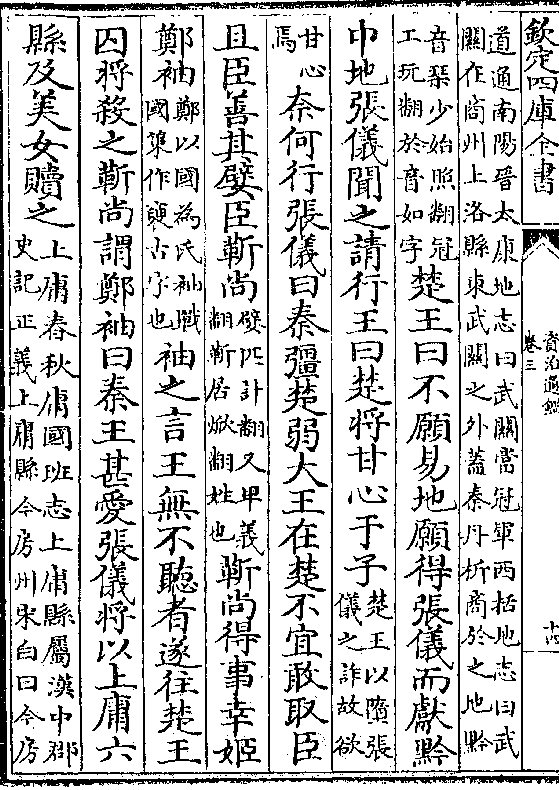 欽定四庫全書
資治通鑑
卷三
十四
道通南陽晉太康地志曰武關當冠軍西括地志曰武
關在商州上洛縣東武關之外蓋秦丹析商於之地黔
音琴少始照翻冠
工玩翻於音如字
楚王曰不願易地願得張儀而獻黔
中地張儀聞之請行王曰楚將甘心于子
楚王以墮張
儀之詐故欲
甘心
焉
柰何行張儀曰秦彊楚弱大王在楚不宜敢取臣
且臣善其嬖臣靳尚
嬖匹計翻又卑義
翻靳居焮翻姓也
靳尚得事幸姬
鄭袖
鄭以國為氏袖戰
國策作褏古字也
袖之言王無不聽者遂往楚王
囚將殺之靳尚謂鄭袖曰秦王甚愛張儀將以上庸六
縣及美女贖之
上庸春秋庸國班志上庸縣屬漢中郡
史記正義上庸縣今房州宋白曰今房